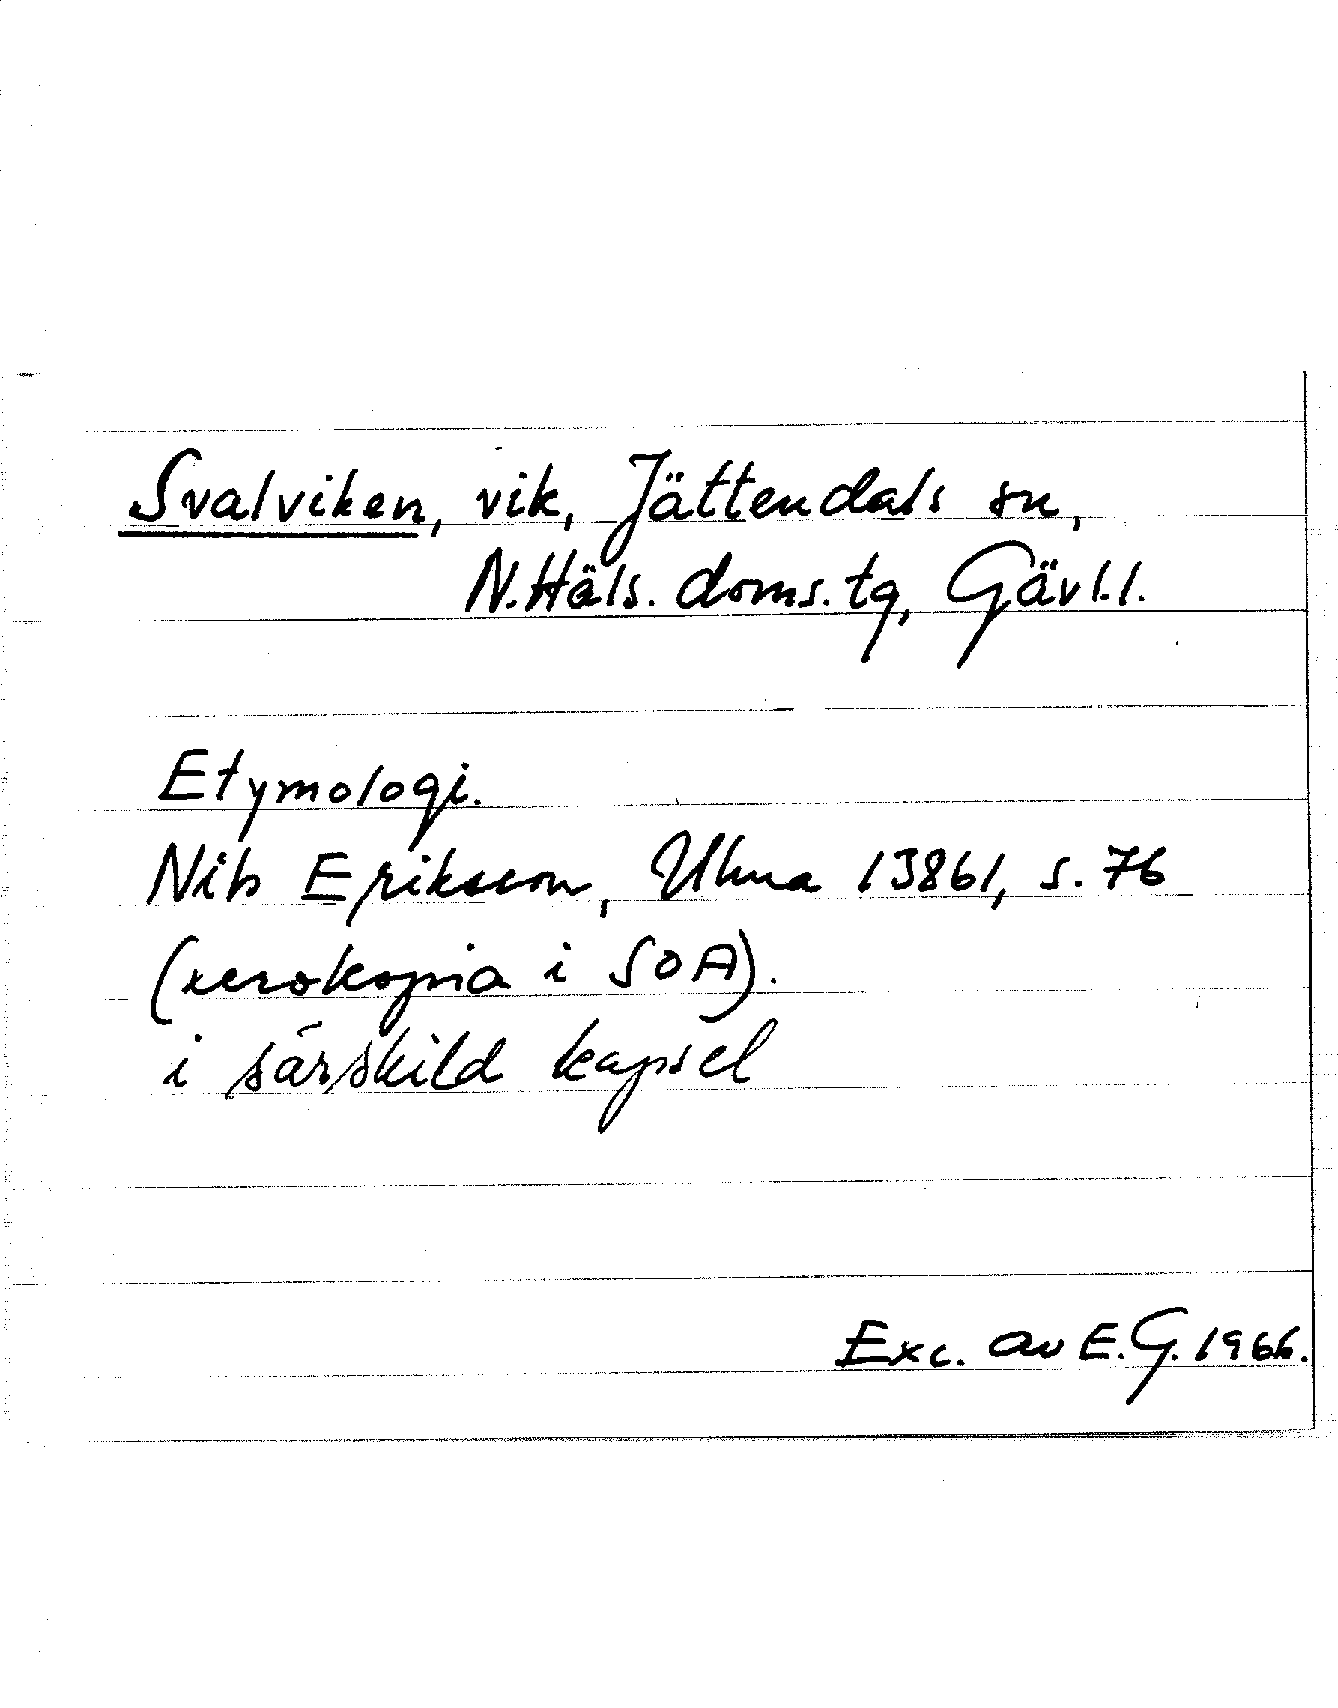 Svalviken, vik, Jättendals sn,
N.Häls. doms. tg, Gävl.l.
Etymologi.
Nils Eriksson, Ulma 13861, s. 76
(xerokopia i SOA).
i särskild kapsel
Exc. av E.G. 1966.